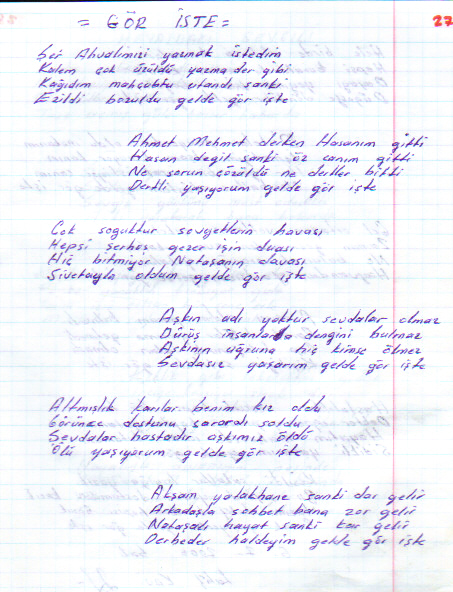 = GÖR İSTE =
27
Şu Ahvalimizi yazmak istedim
Kalem çok üzüldü yazma der gibi
Kağıdım mahçubtu utandı sanki
Ezildi bozuldu gelde gör işte
Ahmet Mehmet derken Hasanım gitti
Hasan degil sanki öz canım gitti
Ne sorun çözüldü ne dertler bitti
Dertli yaşıyorum gelde gör işte
Çok soguktur sovyetlerin havası
Hepsi serhoş gezer işin duası
Hiç bitmiyor Nataşanın davası
oldum gelde gör işte
Aşkın adı yoktur sevdalar olmaz
Dürüş insanlarda dengini bulmaz
Aşkının uğruna hiç kimse ölmez
Sevdasız yaşarım gelde gör işte
Altmışlık karılar benim kız oldu
Görünce dostunu sarardı soldu
Sevdalar hastadır aşkımız öldü
Ölü yaşıyorum gelde gör işte
Akşam yatakhane sanki dar gelir
Arkadaşla sohbet bana zor gelir
Nataşadı hayat sanki kar gelir
Derbeder haldeyim gelde gör işte